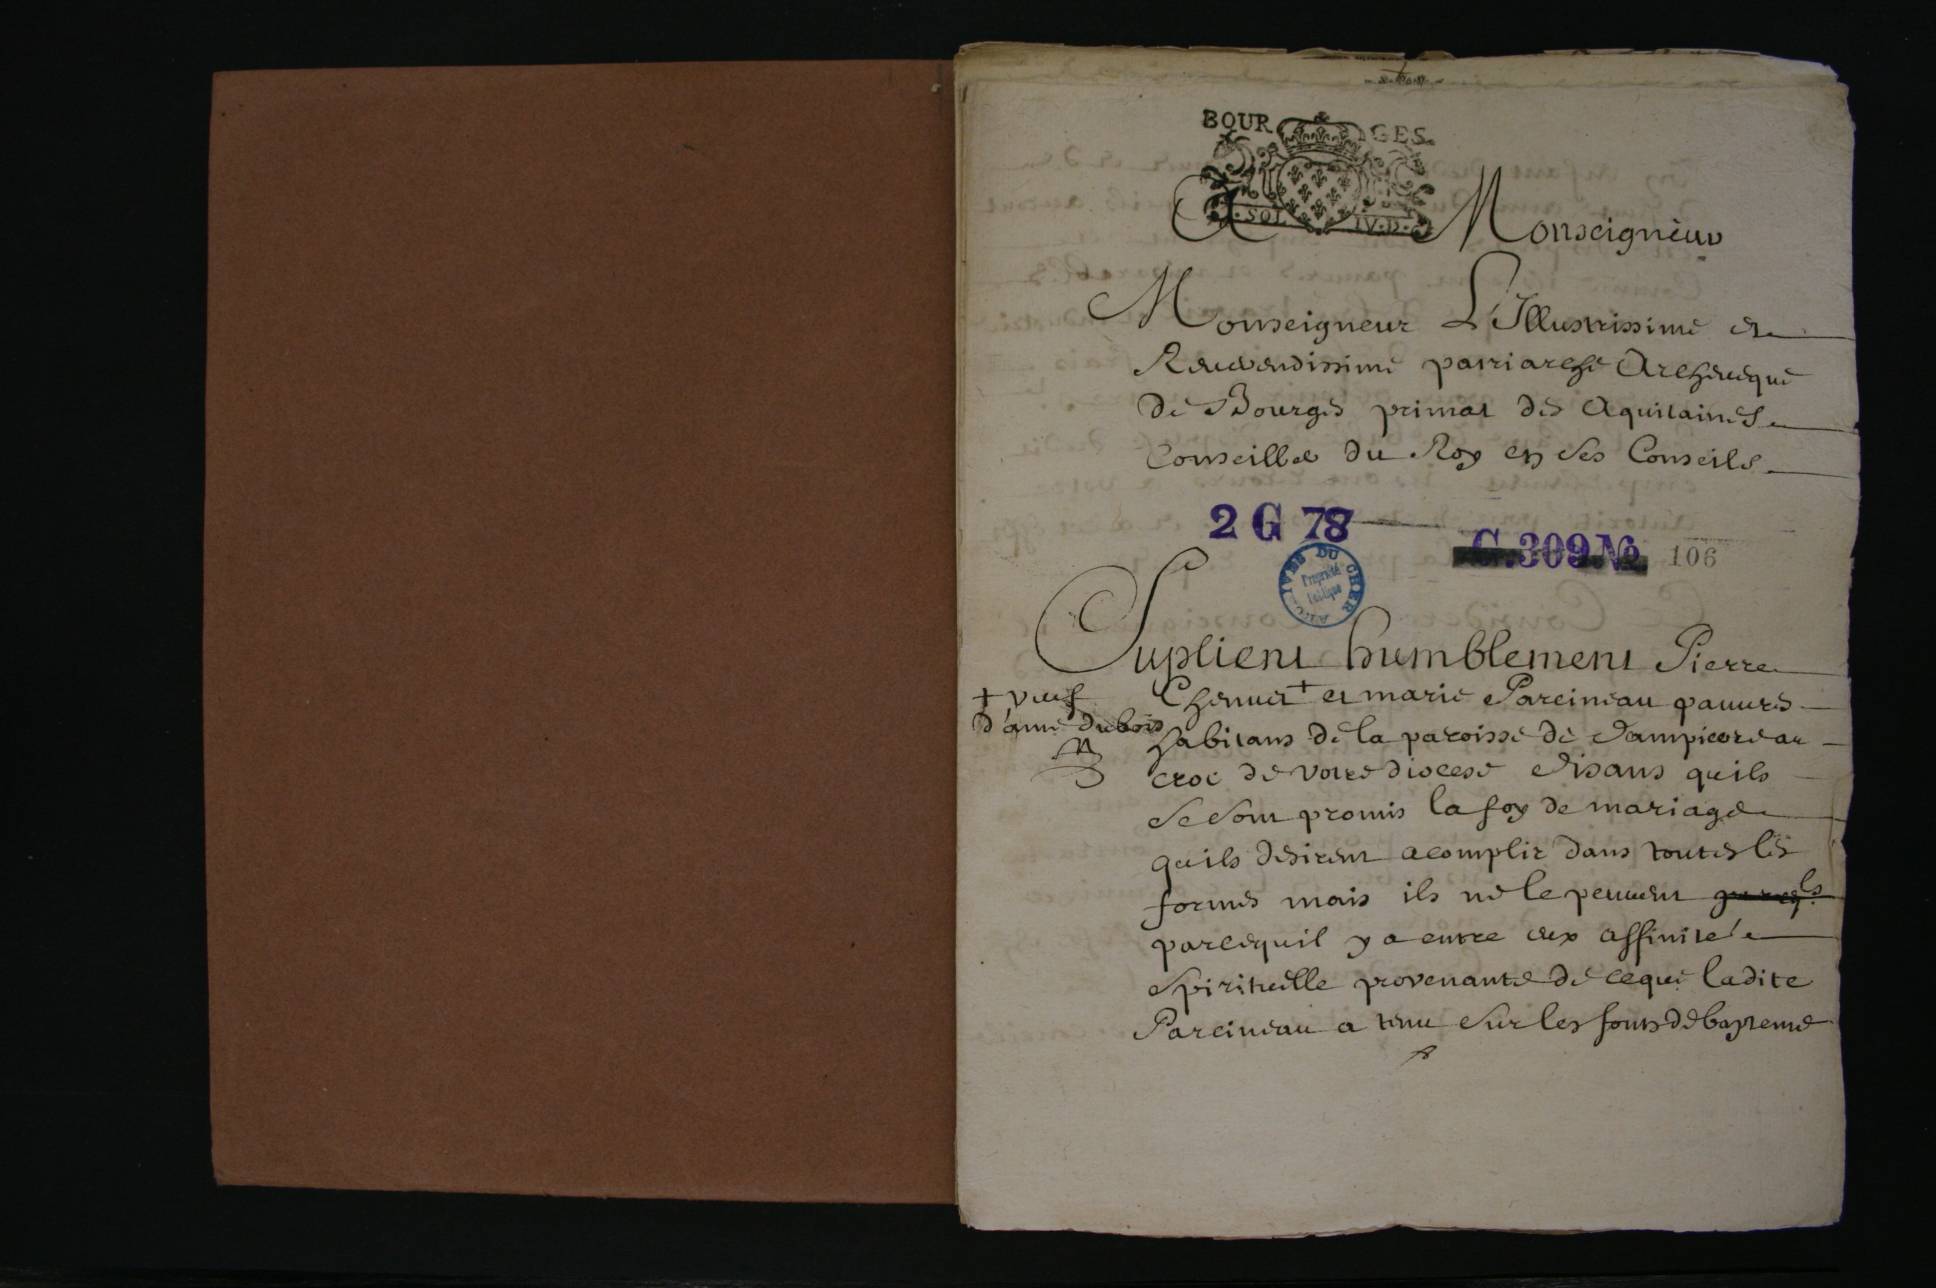 BOURGES
SOL IV.D.
A Monseigneur
Monseigneur L'Illustrissime et
Reverendissime patriarche Archeveque
de Bourges primat des Aquitaines
Conseiller du Roy en ses Conseils
2 G 78
G.309 No 106
ARCHIVES DU CHER
Propriété
Publique
Suplient humblement Pierre
Chenuet + et marie Parcineau pauures
+ veuf
d'anne dubois
habitans de la paroisse de
croc de votre diocese disans quils
se sont promis la foy de mariage
quils desirent acomplir dans toutes les
formes mais ils ne le peuuent
parcequil y a entre eux affinité
spirituelle provenante de ceque ladite
Parcineau a tenu sur les fonts de bapteme